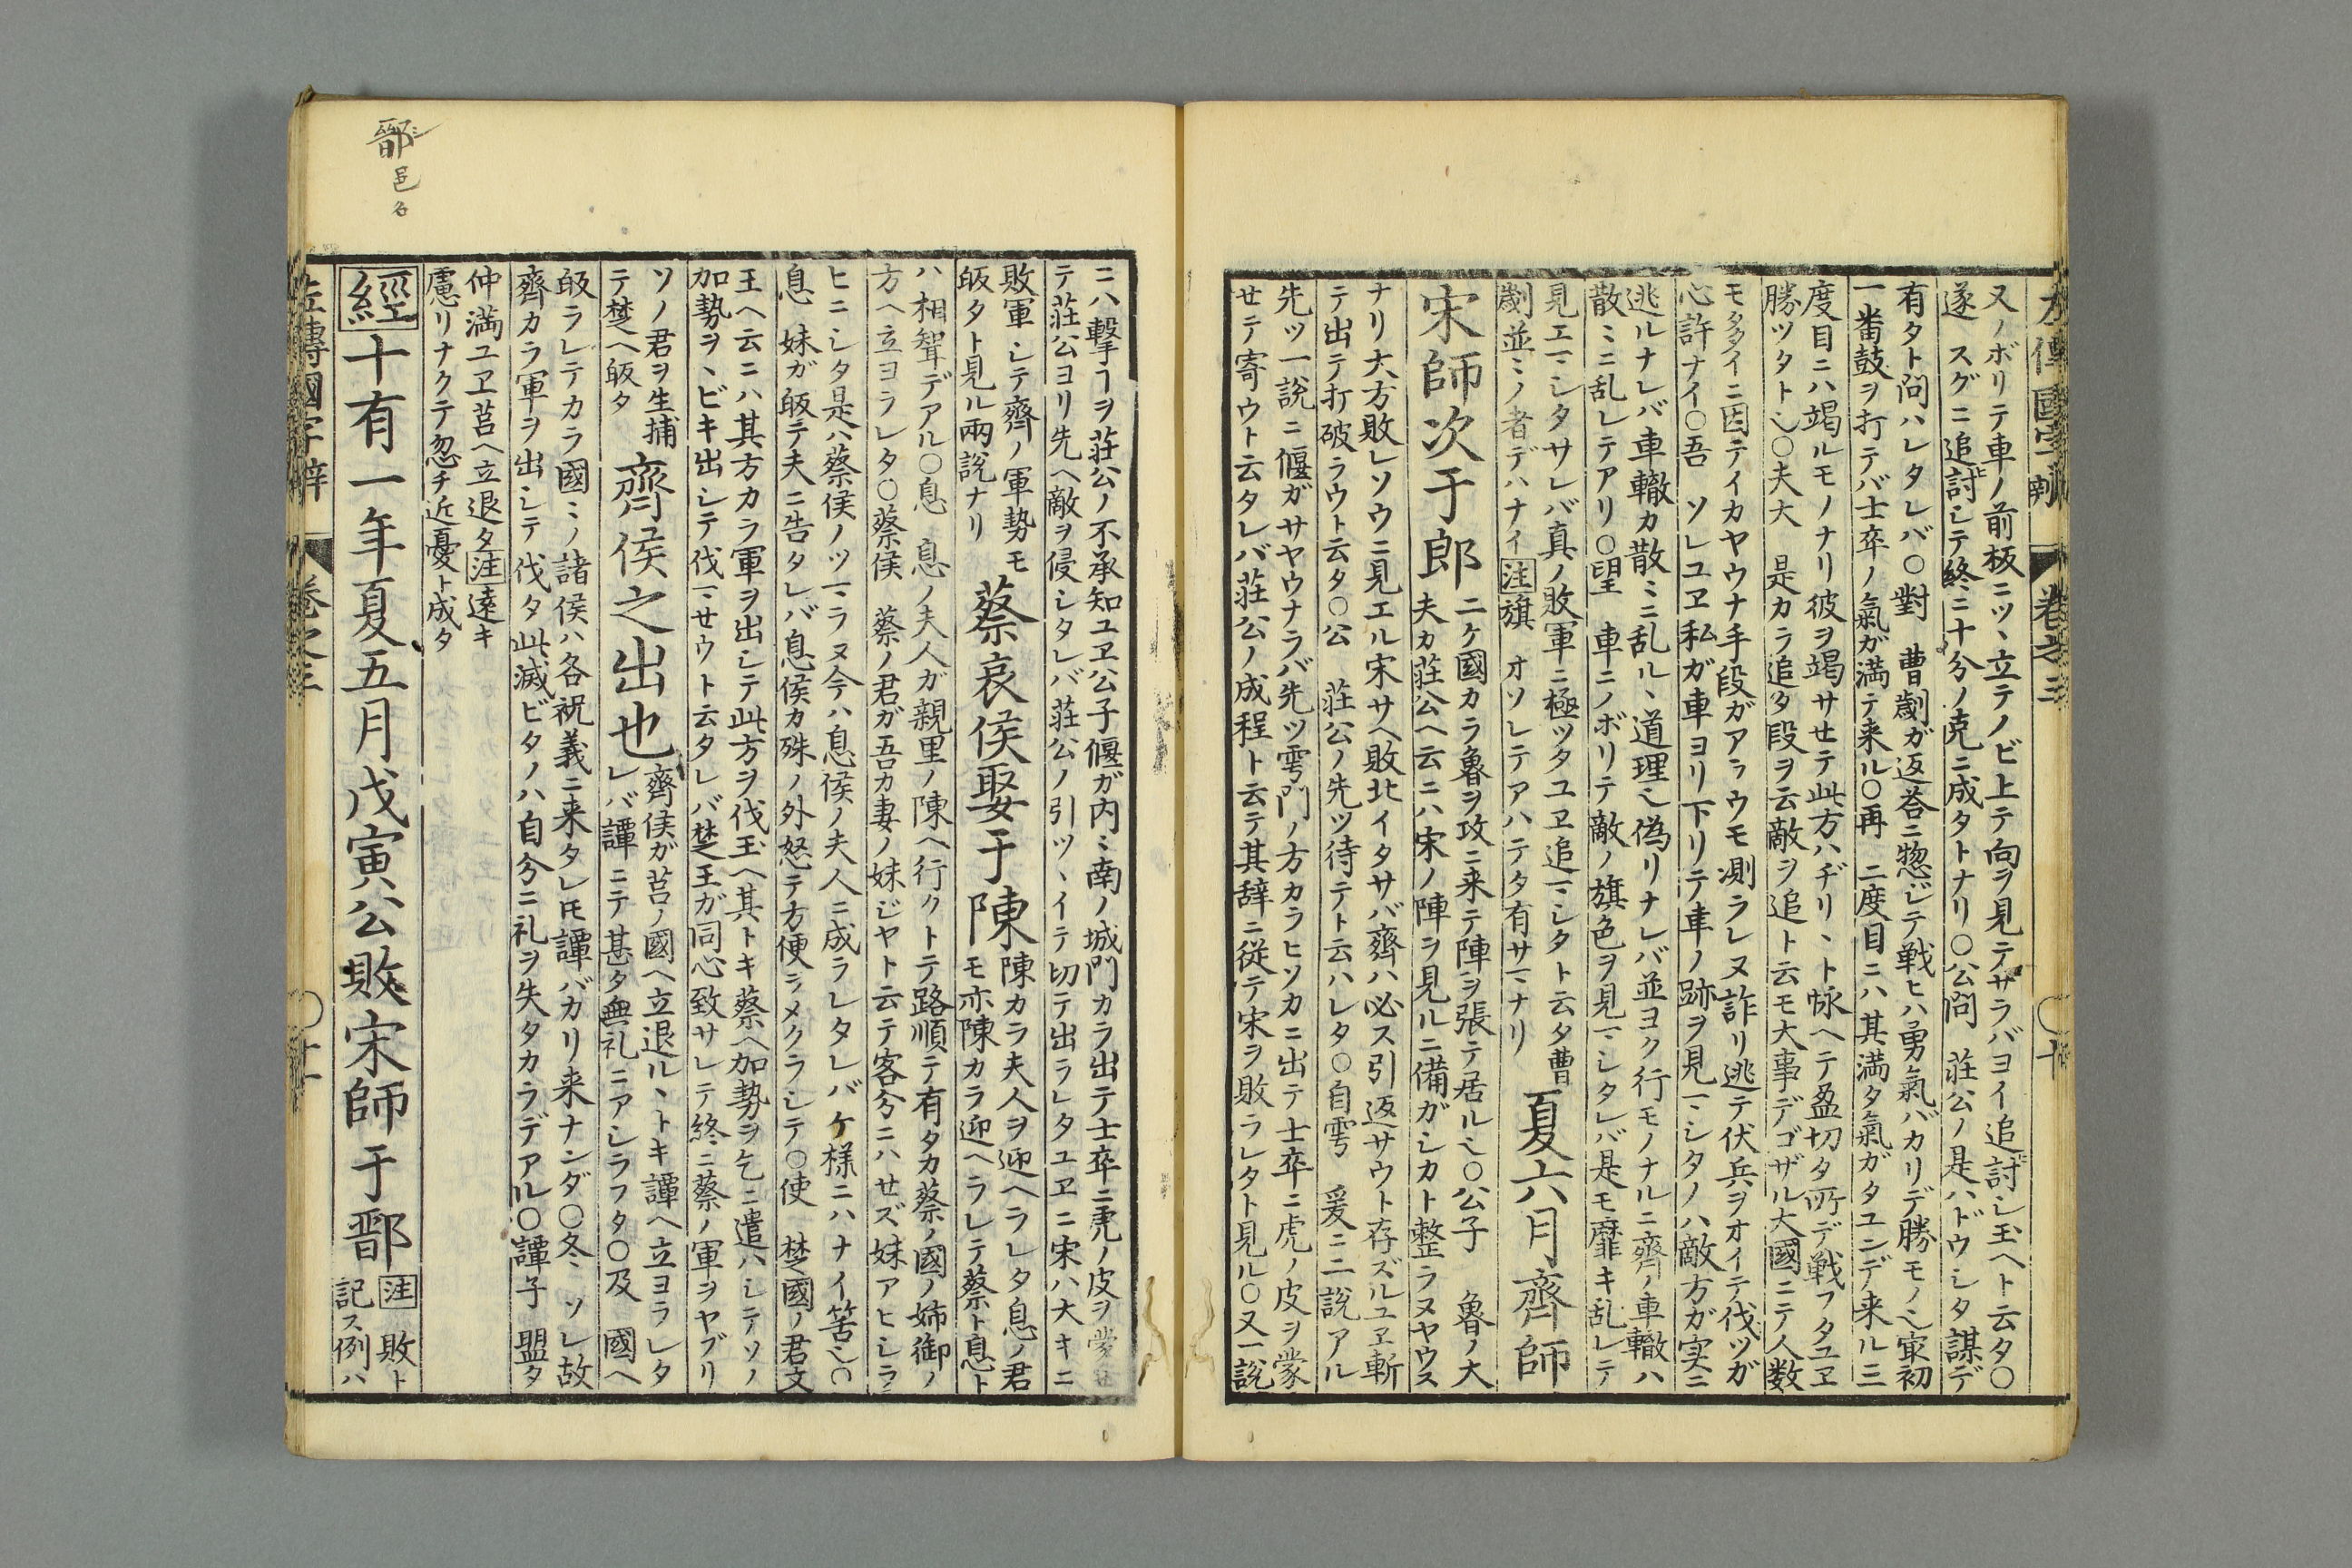 又ノボリテ車ノ前板ニツヽ立テノビ上テ向ヲ見テサラバヨイ追討シ玉ヘト云タ〇
遂 スグニ追討シテ終ニ十分ノ克ニ成タトナリ〇公問 莊公ノ是ハドウシタ謀デ
有タト問ハレタレバ〇對 曹劌ガ返荅ニ惣ジテ戰ヒハ勇氣バカリデ勝モノ也㝡初
一番鼓ヲ打テバ士卒ノ氣ガ満テ来ル〇再 二度目ニハ其満タ氣ガタユンデ来ル三
度目ニハ竭ルモノナリ彼ヲ竭サセテ此方ハヂリヽト怺ヘテ盈切タ所デ戰フタユヱ
勝ツタト也〇夫大 是カラ追タ段ヲ云敵ヲ追ト云モ大事デゴザル大國ニテ人数
モタタイニ因テイカヤウナ手段ガアラウモ測ラレヌ詐リ逃テ伏兵ヲオイテ伐ツガ
心許ナイ〇吾 ソレユヱ私ガ車ヨリ下リテ車ノ跡ヲ見マシタノハ敵方ガ実ニ
逃ルナレバ車轍カ散ミニ乱ルヽ道理也偽リナレバ並ヨク行モノナルニ齊ノ車轍ハ
散ミニ乱レテアリ〇望 車ニノボリテ敵ノ旗色ヲ見マシタレバ是モ靡キ乱レテ
見エマシタサレバ真ノ敗軍ニ極ツタユヱ追マシタト云タ曹
劌並ミノ者デハナイ注旗 オソレテアハテタ有サマナリ
夏六月齊師
宋師次于郎
二ケ國カラ魯ヲ攻ニ来テ陣ヲ張テ居ル也〇公子 魯ノ大
夫カ莊公ヘ云ニハ宋ノ陣ヲ見ルニ備ガシカト整ラヌヤウス
ナリ大方敗レソウニ見エル宋サヘ敗北イタサバ齊ハ必ス引返サウト存ズルユヱ斬
テ出テ打破ラウト云タ〇公 莊公ノ先ツ待テト云ハレタ〇自雩 爰ニ二説アル
先ツ一説ニ偃ガサヤウナラバ先ツ雩門ノ方カラヒソカニ出テ士卒ニ虎ノ皮ヲ蒙
セテ寄ウト云タレバ莊公ノ成程ト云テ其辞ニ従テ宋ヲ敗ラレタト見ル〇又一説
ニハ撃ヿヲ莊公ノ不承知ユヱ公子偃ガ内ミ南ノ城門カラ出テ士卒ニ虎ノ皮ヲ蒙セ
テ莊公ヨリ先ヘ敵ヲ侵シタレバ莊公ノ引ツヽイテ切テ出ラレタユヱニ宋ハ大キニ
敗軍シテ齊ノ軍勢モ
皈タト見ル兩説ナリ
蔡哀侯娶于陳
陳カラ夫人ヲ迎ヘラレタ息ノ君
モ亦陳カラ迎ヘラレテ蔡ト息ト
ハ相聟デアル〇息 息ノ夫人ガ親里ノ陳ヘ行クトテ路順テ有タカ蔡ノ國ノ姉御ノ
方ヘ立ヨラレタ〇蔡侯 蔡ノ君ガ吾カ妻ノ妹ジヤト云テ客分ニハセズ妹アヒシラ
ヒニシタ是ハ蔡侯ノツマラヌ今ハ息侯ノ夫人ニ成ラレタレバケ様ニハナイ筈也〇
息 妹ガ皈テ夫ニ告タレバ息侯カ殊ノ外怒テ方便ラメクラシテ〇使 楚國ノ君文
王ヘ云ニハ其方カラ軍ヲ出シテ此方ヲ伐玉ヘ其トキ蔡ヘ加勢ヲ乞ニ遣ハシテソノ
加勢ヲヽビキ出シテ伐マセウト云タレバ楚王ガ同心致サレテ終ニ蔡ノ軍ヲヤブリ
ソノ君ヲ生捕
テ楚ヘ皈タ
齊侯之出也
齊侯ガ莒ノ國ヘ立退ルヽトキ譚ヘ立ヨラレタ
レバ譚ニテ甚タ無礼ニアシラフタ〇及 國ヘ
皈ラレテカラ國ミノ諸侯ハ各祝義ニ来タレ𪜈譚バカリ来ナンダ〇冬 ソレ故
齊カラ軍ヲ出シテ伐タ此滅ビタノハ自分ニ礼ヲ失タカラデアル〇譚子 盟タ
仲満ユヱ莒ヘ立退タ注遠キ
慮リナクテ忽チ近憂ト成タ
經十有一年夏五月戊寅公敗宋師于鄑
注 敗ト
記ス例ハ
左傳國字辯 卷之三 〇十一
鄑シ
邑名
左傳國字辯 卷之三 〇十